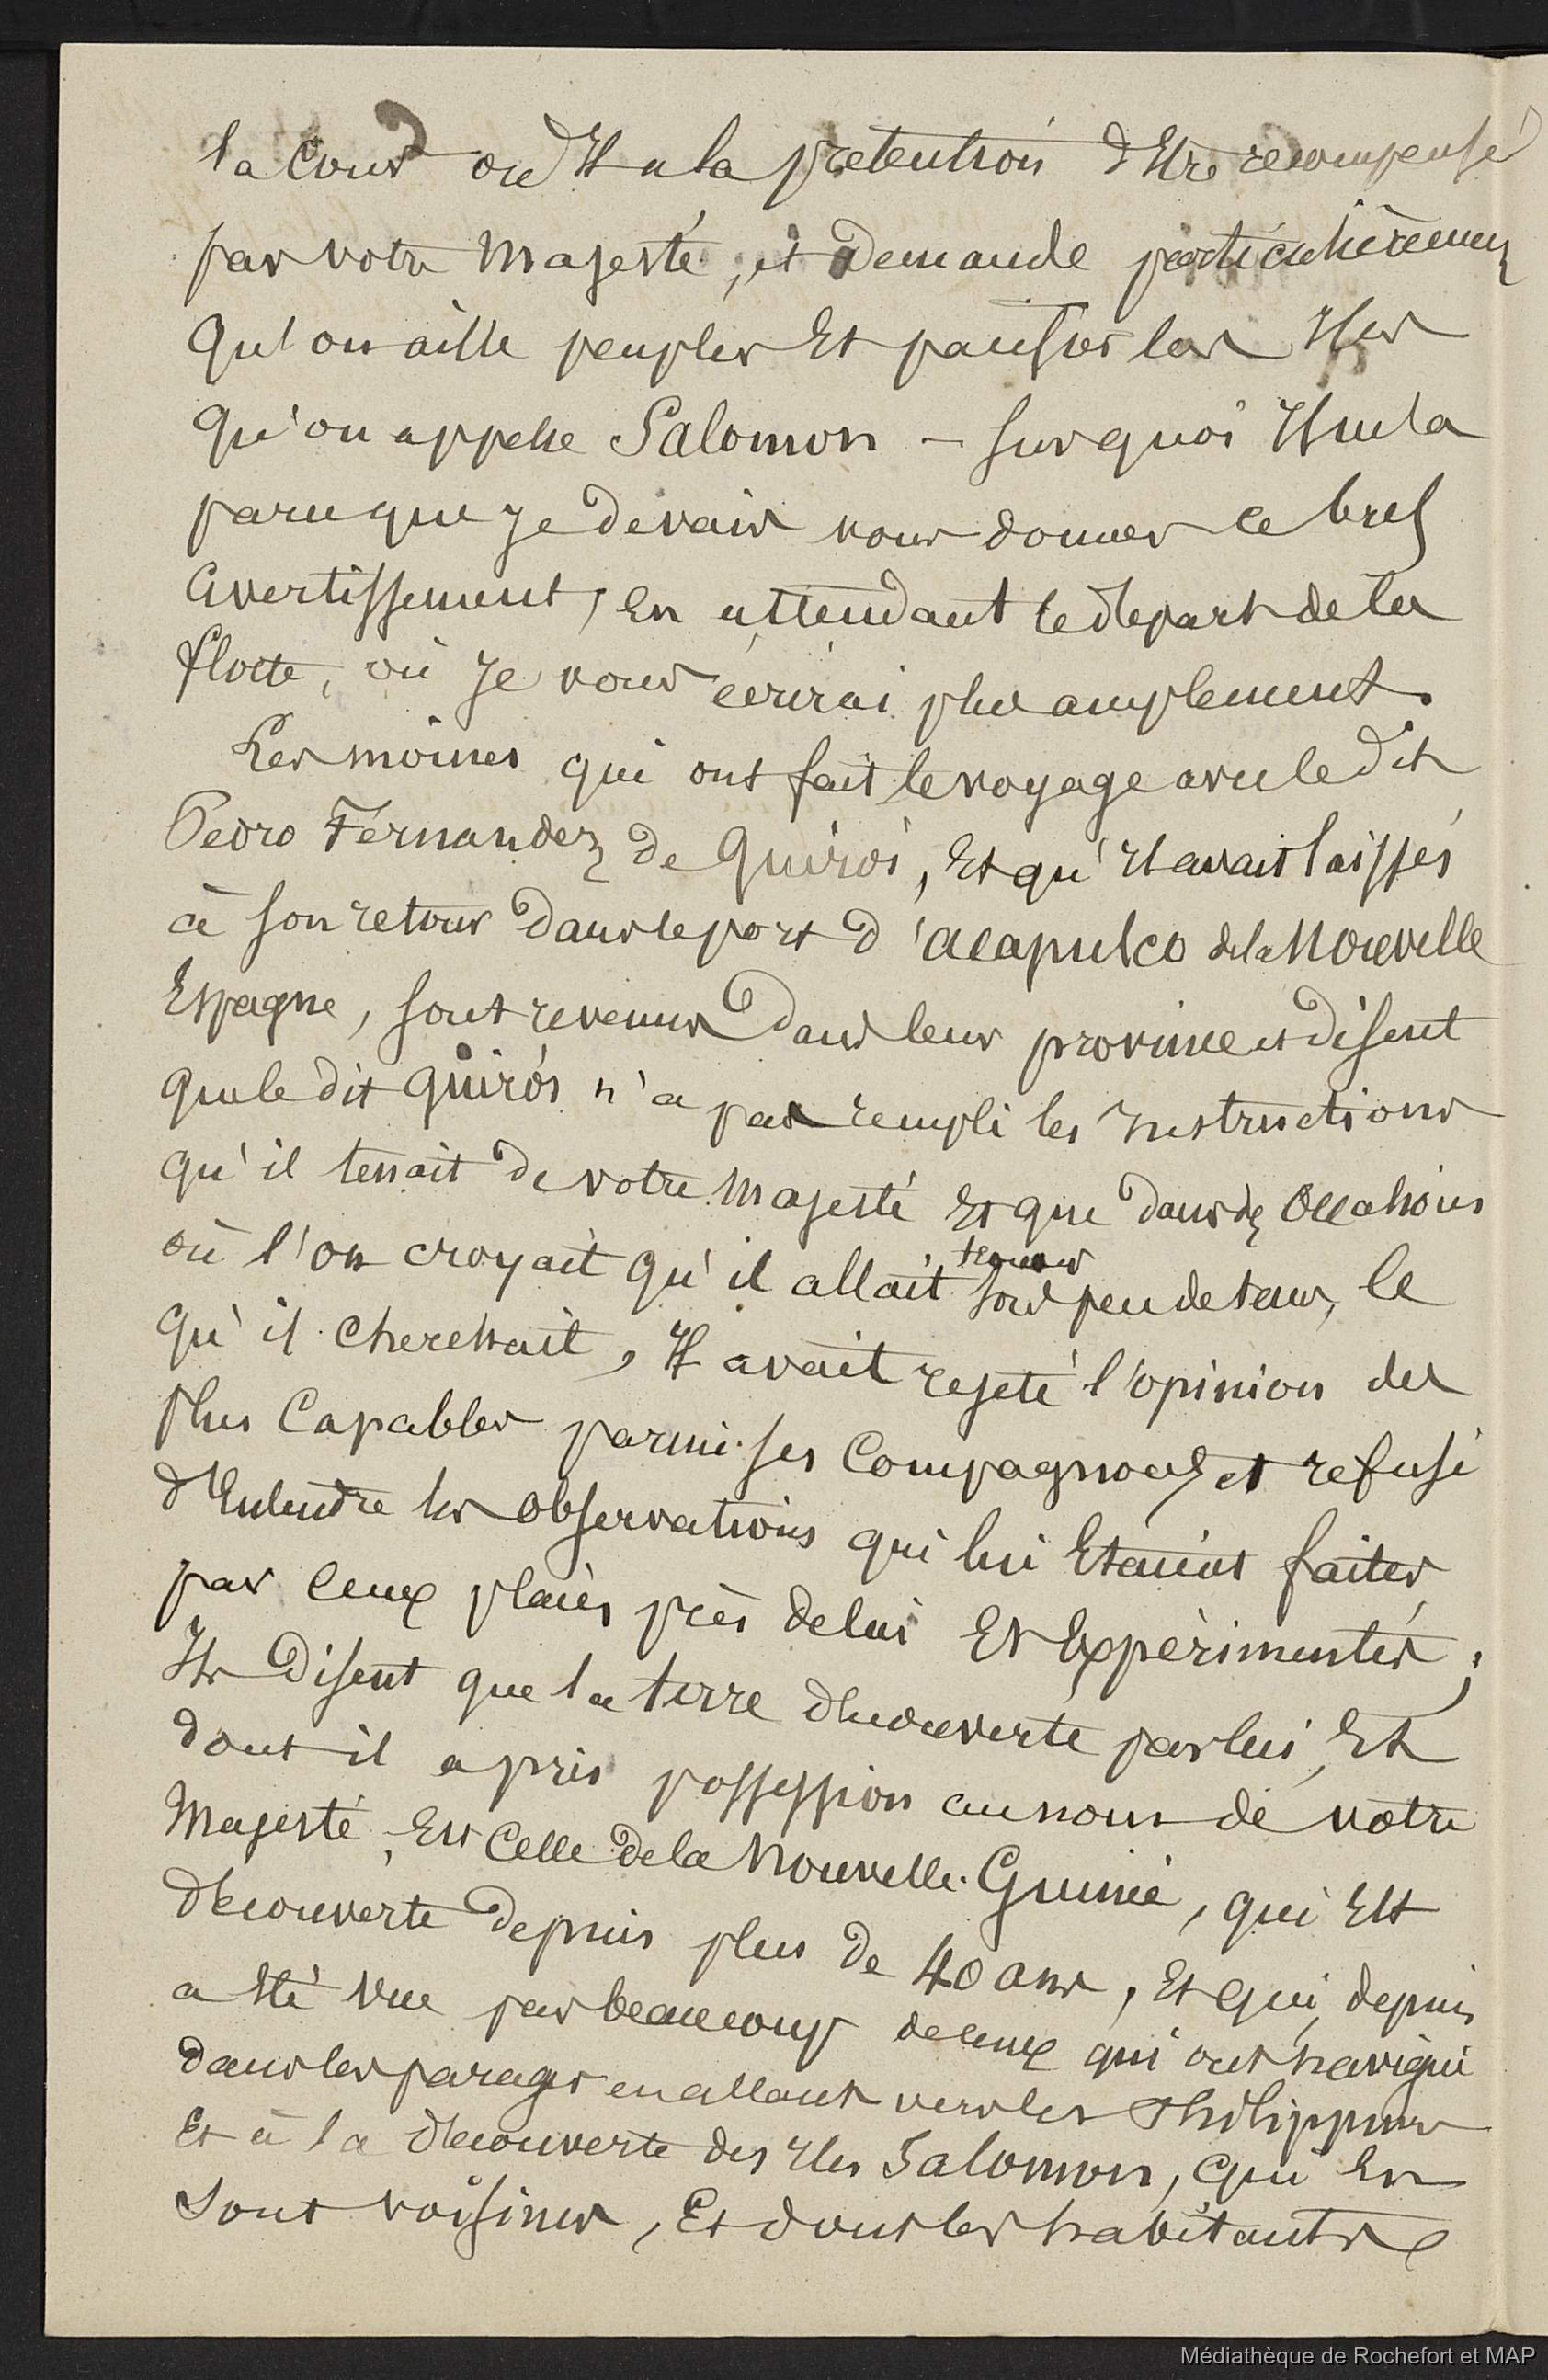 la Cour où Il a la prétention d'Etre récompensé
par votre Majesté, et Demande particulièrement
qu'on aille peupler Et pacifier les Iles
qu'on appelle Salomon – sur quoi Il m'a
paru que Je devais vous donner ce bref
avertissement, En attendant le départ de la
flotte, où Je vous écrirai plus amplement.
Les moines qui ont fait le voyage avec le dit
Pedro Férnandez de Quiros, Et qu'Il avait laissés
à son retour Dans le port d'acapulco de la Nouvelle
Espagne, sont revenus Dans leur province et disent
que le dit Quirós n'a pas rempli les Instructions
qu'il tenait de votre Majesté Et que dans des Occasions
où l'on croyait qu'il allait trouver
sous peu de tems, le
qu'il cherchait, Il avait rejeté l'opinion des
plus Capables parmi ses Compagnons et refusé
d'Entendre les observations qui lui Etaient faites
par Ceux placés près de lui Et Expérimentés ;
Ils Disent que la terre découverte par lui, Et
dont il a pris possession au nom de votre
Majesté, Est Celle de la Nouvelle-Guinée, qui Est
découverte depuis plus de 40 ans, Et qui, depuis
a Eté vue par beaucoup de ceux qui ont navigué
dans les parages en allant vers les Philippines
Et à la découverte des Iles Salomon, qui En
sont voisines, Et dont les habitants
Médiathèque de Rochefort et MAP